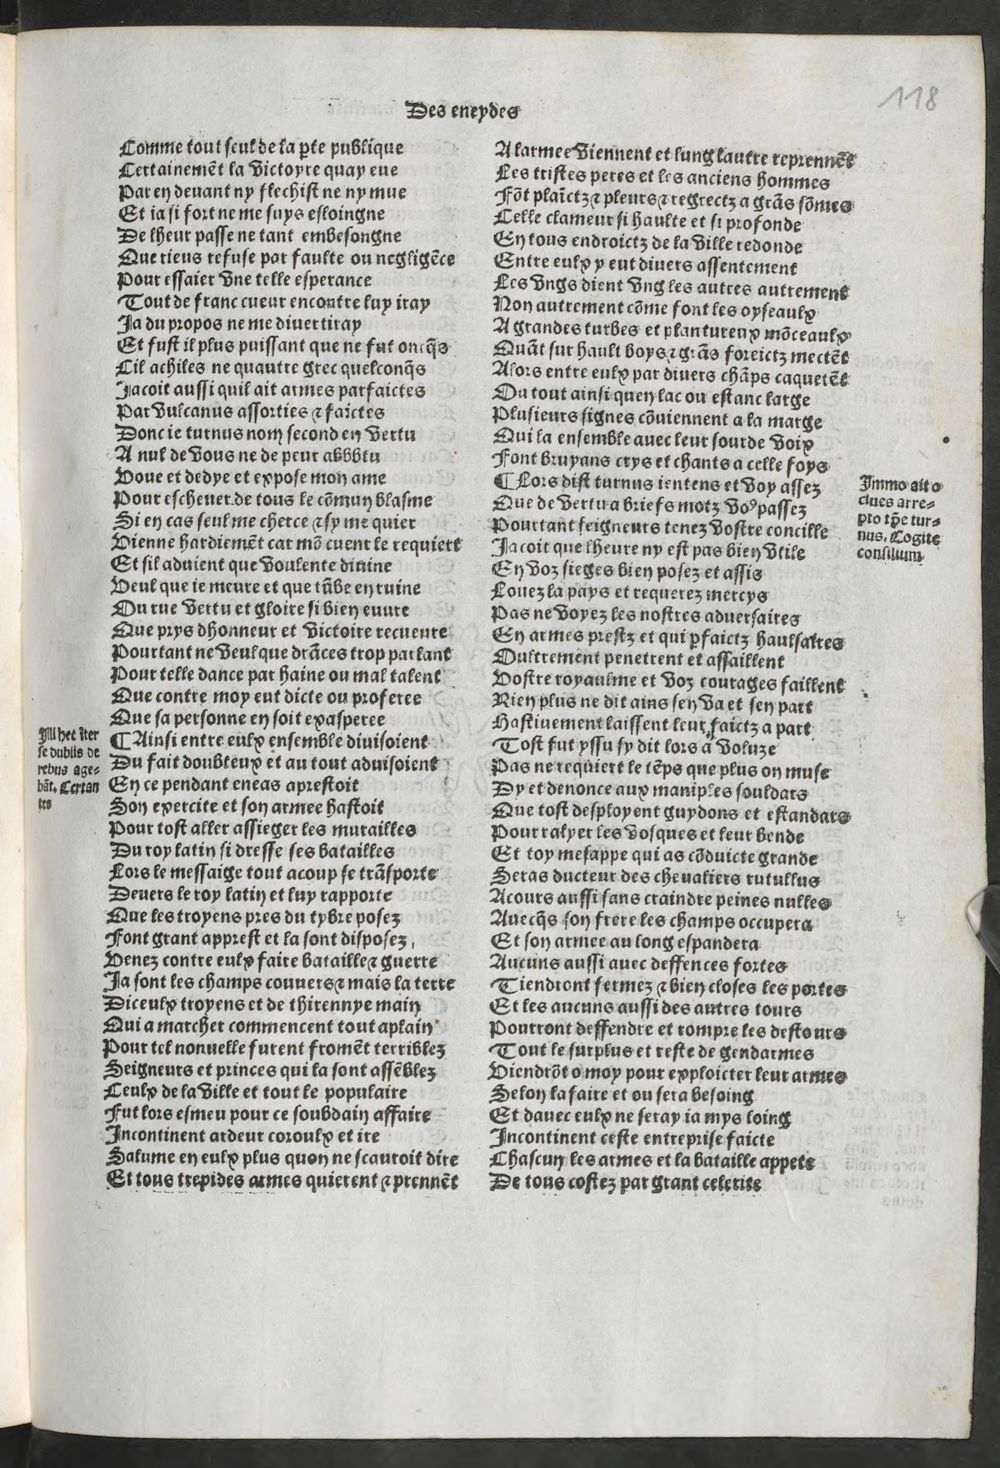 118
Des eneydes
Comme tout seul de la p̄te publique
Certainemēt la victoyre quay eue
Par en devant ny flechist ne ny mue
Et ia si fort ne me suys esloingne
De lheur passe ne tant embesongne
Que riens refuse par faulte ou negligēce
Pour essaier vne telle esperance
Tout de franc cueur encontre luy iray
Ja du propos ne me divertiray
Et fust il plus puissant que ne fut oncq̄s
Cil achiles ne quautre grec quelconq̄s
Jacoit aussi quil ait armes parfaictes
Par vulcanus assorties ⁊ faictes
Donc ie turnus nom second en vertu
A nul de vous ne de peur abbbtu
Voue et dedye et expose mon ame
Pour eschever de tous le cōmun blasme
Si en cas seul me cherce ⁊ sy me quier
Vienne hardiemēt car mō cuent le requiert
Et sil advient que voulente divine
Veul que ie meure et que tūbe en ruine
Ou rue vertu et gloire si bien euure
Que prys dhonneur et victoire recueure
Pourtant ne veul que drāces trop parlant
Pour telle dance par haine ou mal talent
Que contre moy eut dicte ou proferee
Que sa personne en soit exasperee
¶ Ainsi entre eulx ensemble divisoient
Du fait doubteux et au tout advisoient
En ce pendant eneas aprestoit
Son exercite et son armee hastoit
Pour tost aller assieger les murailles
Du roy latin si dresse ses batailles
Lors le messaige tout acoup se trāsporte
Devers le roy latin et luy rapporte
Que les troyens pres du tybre posez
Font grant apprest et la sont disposez
Venez contre eulx faire bataille ⁊ guerre
Ja sont les champs couvers ⁊ mais la terre
Diceulx troyens et de thirennye main
Qui a marcher commencent tout aplain
Pour tel nouuelle furent fromēt terriblez
Seigneurs et princes qui la sont assēblez
Ceulx de la ville et tout le populaire
Fut lors esmeu pour ce soubdain affaire
Incontinent ardeur coroulx et ire
Salume en eulx plus quon ne scauroit dire
Et tous trepides armes quierent ⁊ prennēt
Illi hec īter
se dubiis de
rebus age-
bāt. Certan
tes
A larmee viennent et lung lautre reprennēt
Les tristes peres et les anciens hommes
Fōt plaictz ⁊ pleurs ⁊ regrectz a grās sōmes
Celle clameur si haulte et si profonde
En tous endroictz de la ville redonde
Entre eulx y eut divers assentement
Les vngs dient vng les autres autrement
Non autrement cōme font les oyseaulx
A grandes turbes et plantureux mōceaulx
Quāt sur hault boys ⁊ grās foreictz mectēt
Alors entre eulx par divers chāps caquetēt
Ou tout ainsi quen lac ou estanc large
Plusieurs signes cōuiennent a la marge
Qui la ensemble avec leur sourde voix
Font bruyans crys et chants a celle foys
¶ Lors dist turnus ientens et voy assez
Que de vertu a briefs motz voꝰ passez
Pourtant seigneurs tenez vostre concille
Jacoit que lheure ny est pas bien vtile
En voz sieges bien posez et assis
Louez la pays et requerez mercys
Pas ne voyez les nostres adversaires
En armes prestz et qui p̄faictz haulsaires
Oultrement penetrent et assaillent
Vostre royaulme et voz courages faillent
Rien plus ne dit ains sen va et sen part
Hastivement laissent leur faictz a part
Tost fut yssu sy dit lors a voluze
Pas ne requiert le tēps que plus on muse
Dy et denonce aux maniples souldars
Que tost desployent guydons et estandars
Pour ralyer les vosques et leur bende
Et toy mesappe qui as cōduicte grande
Seras ducteur des chevaliers rutullus
Acours aussi sans craindre peines nulles
Avecq̄s son frere les champs occupera
Et son armee au long espandera
Aucuns aussi avec deffences fortes
Tiendront fermez ⁊ bien closes les portes
Et les aucuns aussi des autres tours
Pourront deffendre et rompre les destours
Tout le surplus et reste de gendarmes
Viendrōt o moy pour exploicter leur armes
Selon lafaire et ou sera besoing
Et davec eulx ne seray ia mys loing
Incontinent ceste entreprise faicte
Chascun les armes et la bataille appete
De tous costez par grant celerite
Jmmo ait o
ciues arre-
pto tp̄e tur-
nus. Cogite
consilium